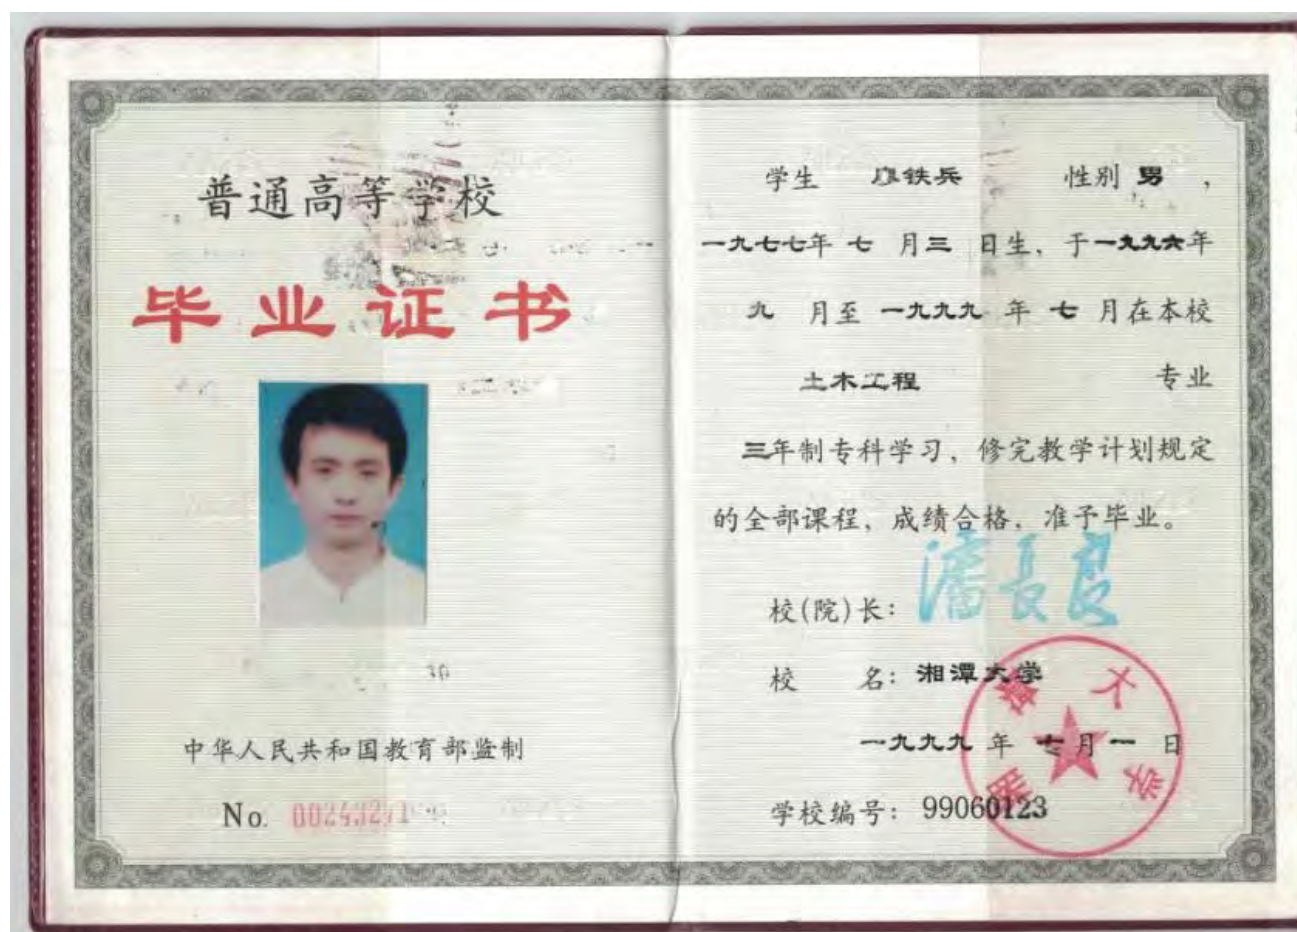 普通高等学校
毕业证书
中华人民共和国教育部监制
No.
学生 廖铁兵 性别 男，
一九七七年 七 月 三 日生，于一九九六年
九 月至 一九九九 年 七 月在本校
土木工程 专业
三年制专科学习，修完教学计划规定
的全部课程，成绩合格，准予毕业。
校(院)长： 潘長良
校 名：湘潭大学
一九九九 年 七 月 一 日
学校编号： 99060123
湘潭大学